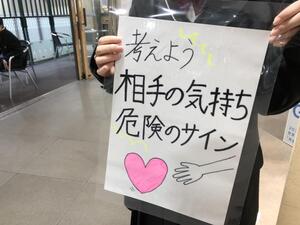 考えよう
相手の気持ち
危険のサイン